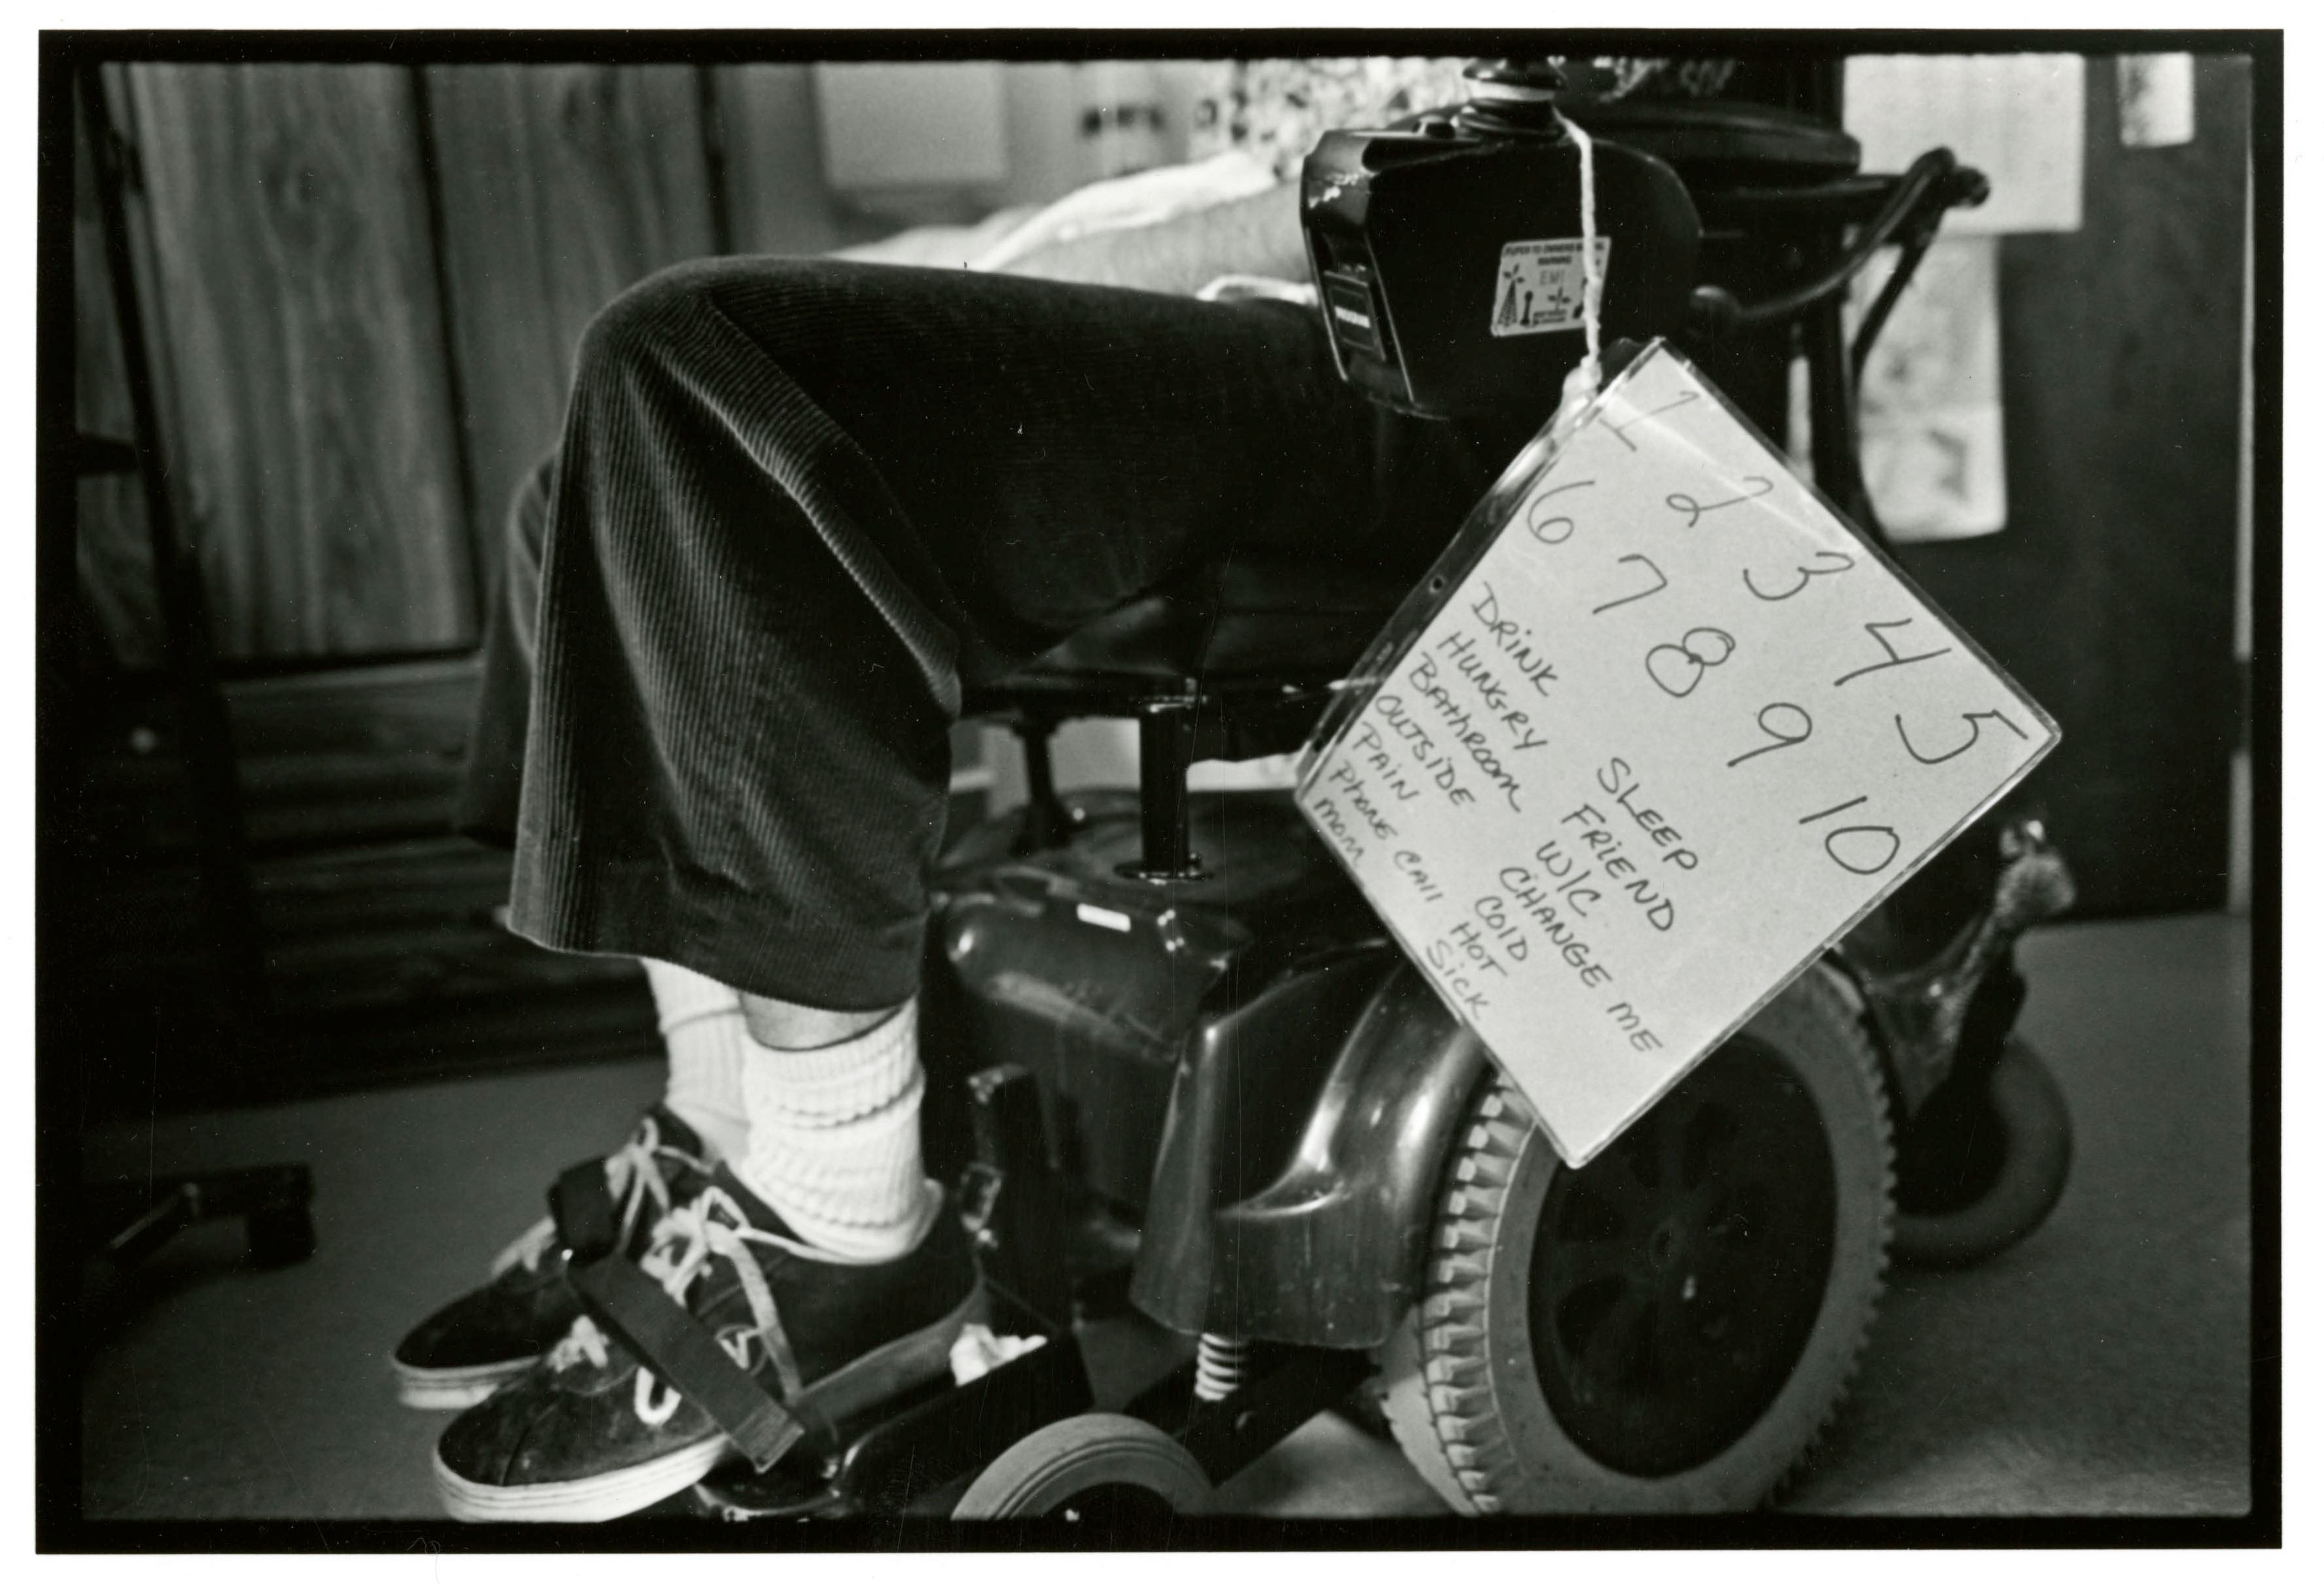 REFER TO OWNERS
WARNING
EMI
1 2 3 4 5
6 7 8 9 10
DRiNK SLEEP
HUNGRY FRiEND
BAthROOm W/C
OUTSiDE CHANGE ME
PAiN COlD
PhONE CAll HOT
mom SicK